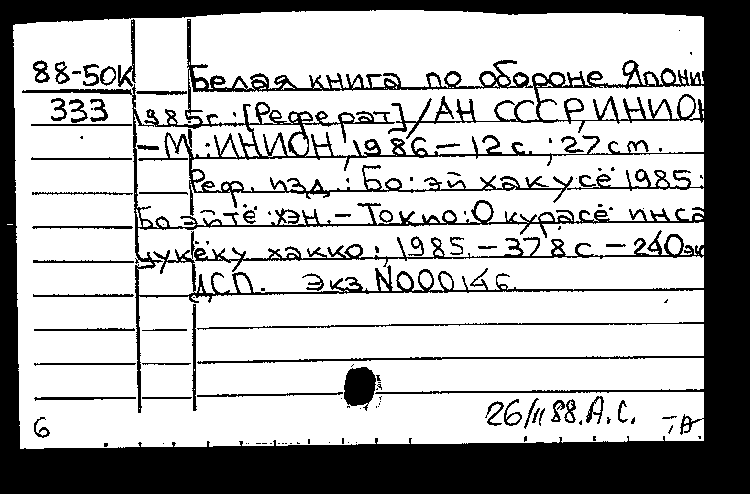 88-50К Белая книга по обороне Япони
333 1985г.:[Реферат]/АН СССР,ИНИОН
–М.:ИНИОН,1986.–12с.;27см.
Реф. изд.: Бо:эй хакусё 1985:
Бо эйтё:хэн.–Токио:Окурасё инса
цукёку хакко:,1985.–378с.–240эк
ДСП. Экз.N000146.
26/II 88. А.С.
6